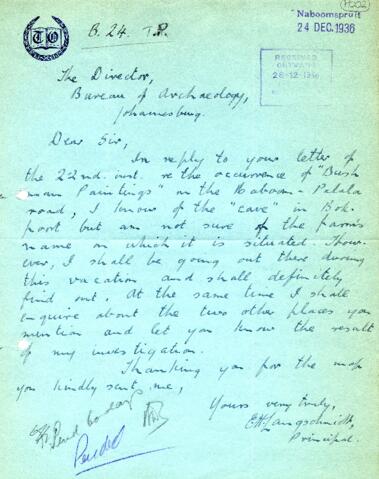 A002
Naboomspruit
24 DEC. 1936
T O
B. 24. T.P.
RECEIVED
28-12-1936
The Director,
Bureau of Archaeology,
Johannesburg.
Dear Sir,
In reply to your letter of
the 22nd. inst. re the occurrence of "Bush
man Paintings" on the Naboom-Palala
road, I know of the "cave" in Bok-
poort but am not sure of the farm's
name on which it is situated. How-
ever, I shall be going out there during
this vacation and shall definitely
find out. At the same time I shall
enquire about the two other places you
mention and let you know the result
of my investigation.
Thanking you for the map
you kindly sent me,
Yours very truly,
E H Langschmidt,
Principal.
Pend 60 days
Pended